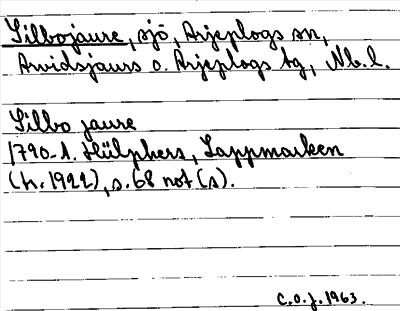 Silbojaure, sjö, Arjeplogs sn,
Arvidsjaurs o. Arjeplogs tg, Nb.l.
Silbo jaure
1790-t. Hülphers, Lappmarken
(tr. 1922), s. 68 not (s).
C.O.J. 1963.